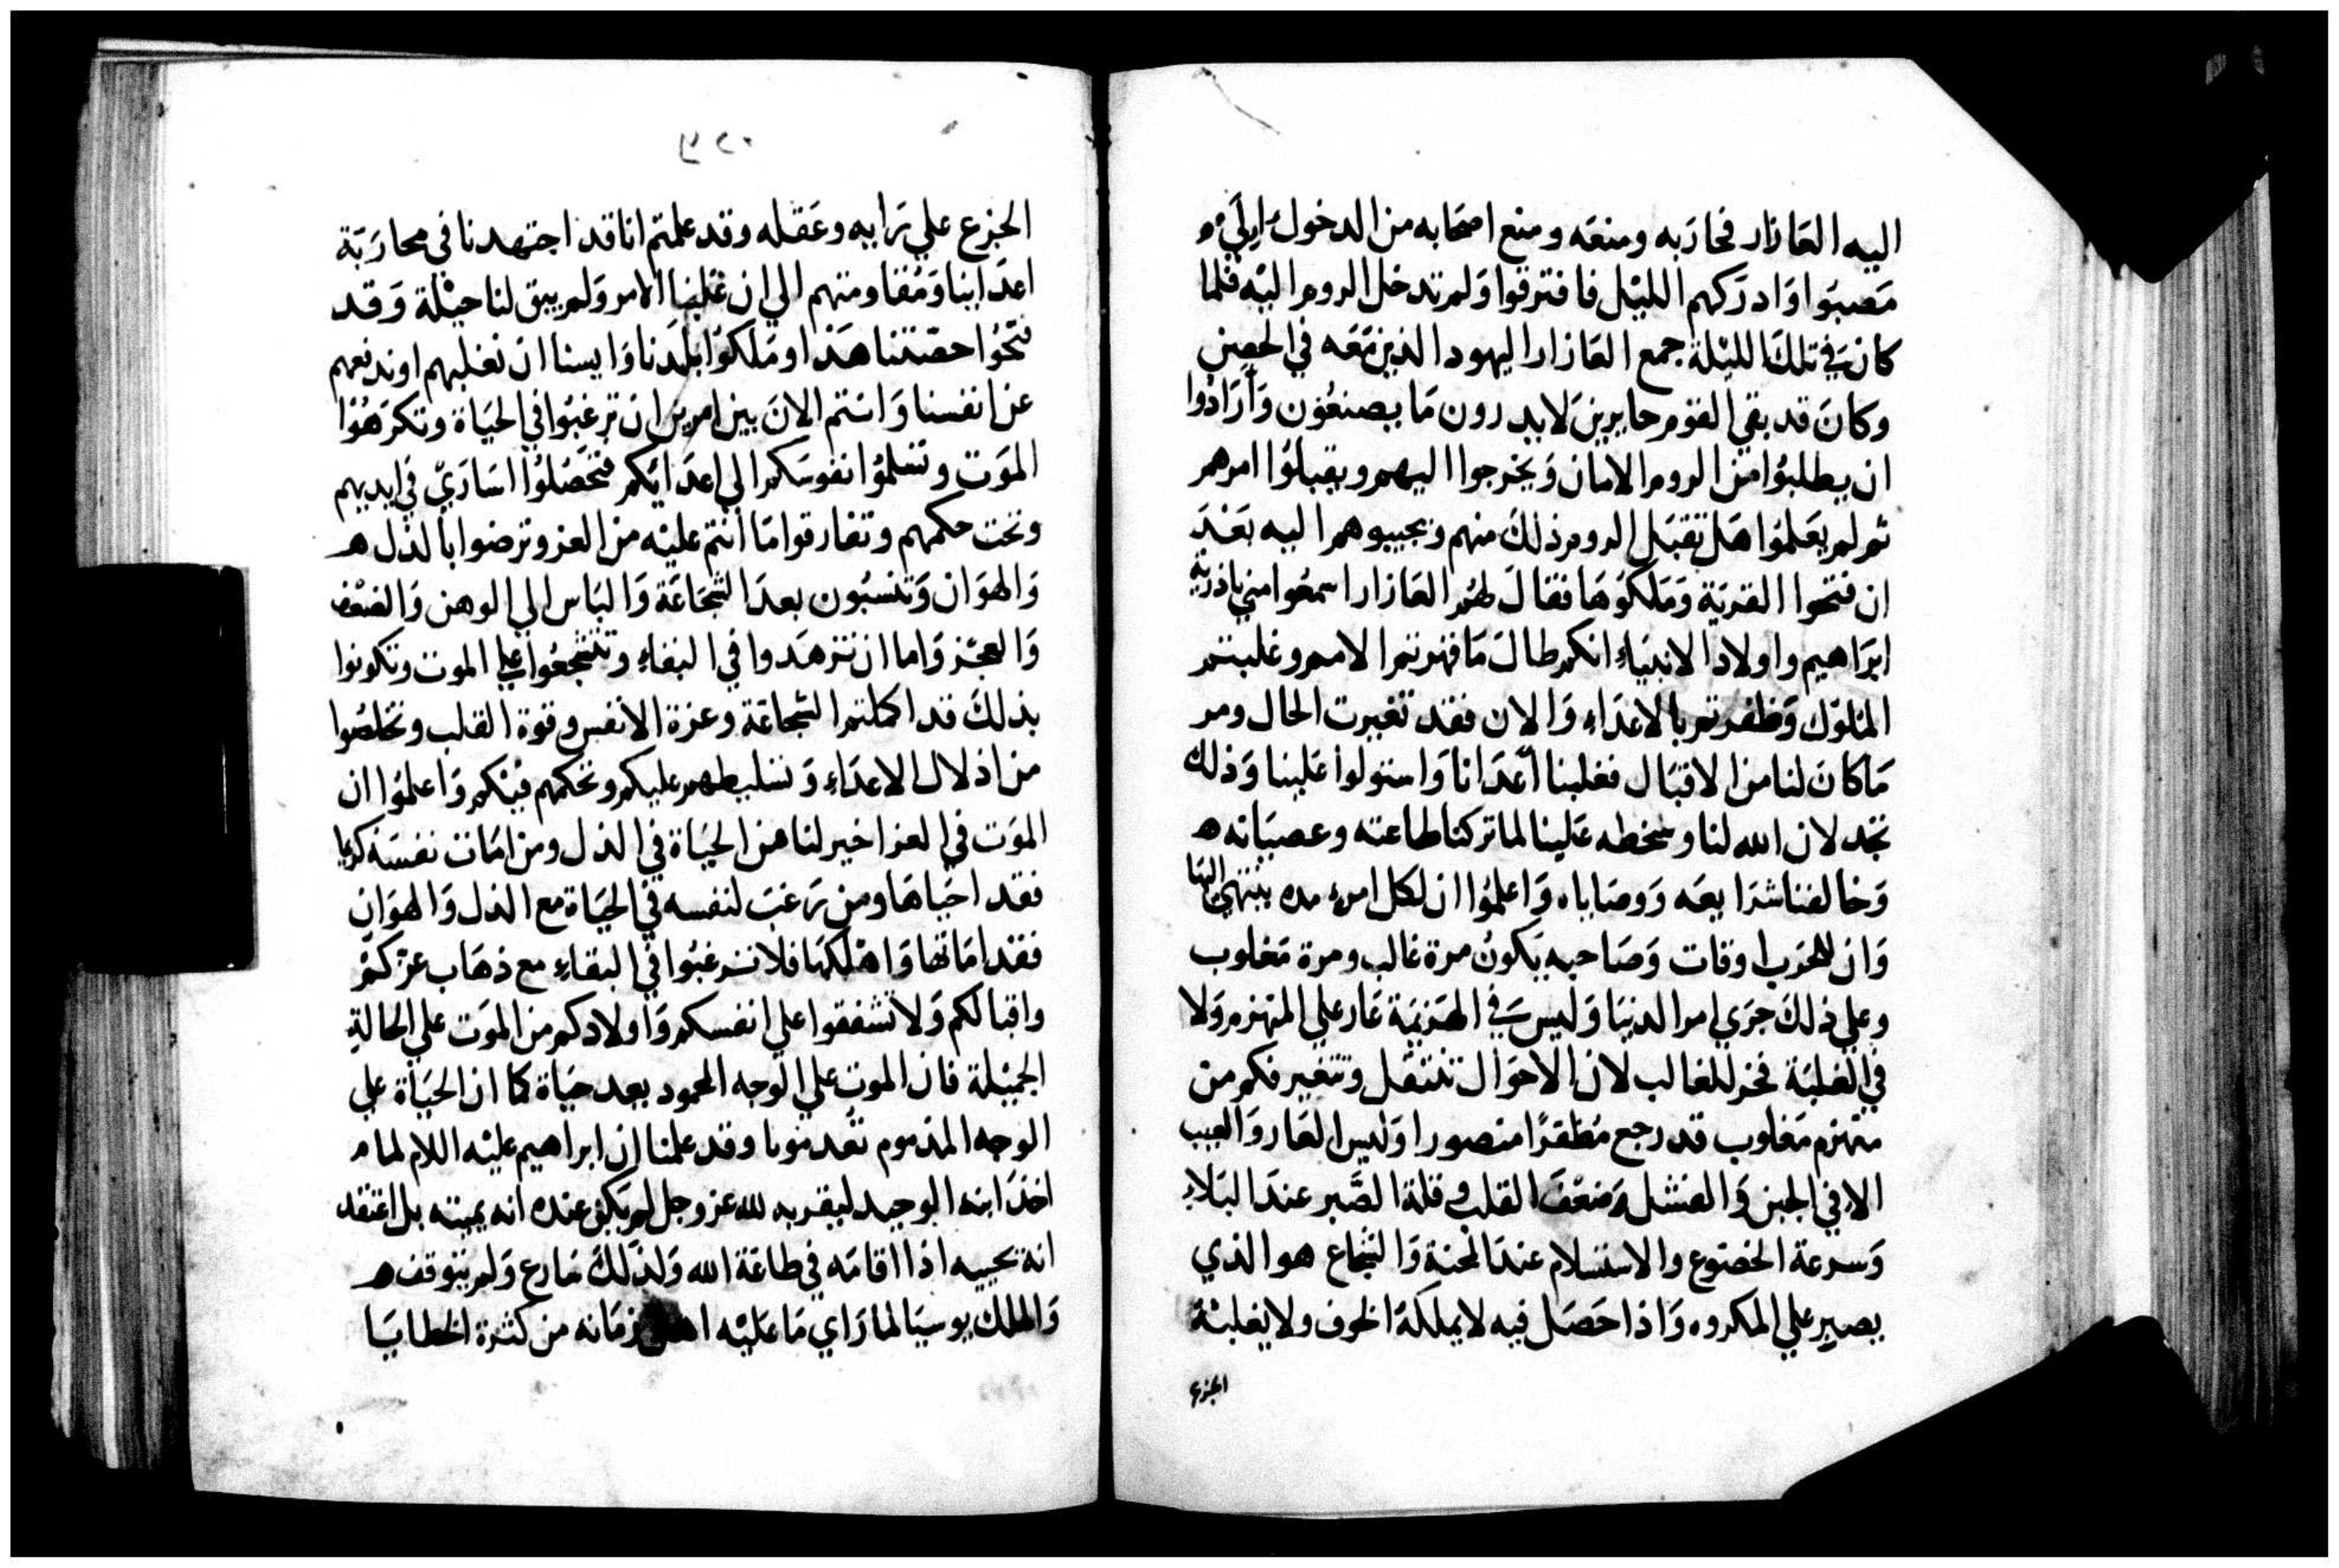 اليه العَازار فحارَبه ومنعَه ومنع اصحَابه من الدخول الِيَ
مَصبوَا وَادرَكهم الليْل فافترقوا وَلم تدخل الروم اليْه فلما
كانَ في تلكَ الليْلة جمع العَازار اليهود الذين مَعَه في الحصن
وكانَ قد بقي القوم حايرينَ لايدرون مَا يصنعُون وَأرَادُوا
ان يطلبُوا من الروم الامان وَيخرجوا اليهم ويقبلوُا امرهم
ثم لم يعَلموُا هَل تقبَل الروم ذلكَ منهم وتجيبوهم اليه بَعْدَ
ان فتحوا القريَة وَمَلكوُهَا فقالَ لهُم العَازار اسمعُوا مني ياذرية
ابرَاهيم واولاد الانبيَاء انكم طالَ مَا قهرتم الامم وغلبتم
الملوْك وَظفرتم بالاعدَاء وَالان فقد تغيرت الحال ومر
مَا كانَ لنا من الاقبَال فغلبنا اعَدَانا وَاستولوا عَلينا وَذلك
تجد لان الله لنا وسخطه عَلينا لما تركنا طاعته وعصيَانه
وَخالفنا شرَايعَه وَوصَاياه وَاعلموُا ان لكل امرء مده ينتهي اليهَا
وَان للحَرب اوقات وَصَاحبه يَكونُ مرة غالب ومرة مَغلوب
وعلي ذلكَ جرَي امر الدنيَا وَليسَ في الهَزيمَة عَار علي المنهزم وَلا
في الغلبَة فخر للغالب لان الاحوَال تنتقَل وتتغير فكم من
منهزم مَغلوب قد رجع مُظفرًا منصورا وَليس العَار وَالعيب
الا في الجبن وَالفشل وَضعْفَ القلب وقلة الصَّبر عندَ البَلاءِ
وَسرعة الخضوع والاستسلام عندَ المحنة وَالشجاع هو الذي
يصبر علي المكروه وَاذا حَصَل فيه لايملكهُ الخوف ولا يغلبهُ
الجزع
الجزع علي رَايه وعَقله وقد علمتم اناقد اجتهدنا في محارَبَة
اعدَاينا وَمُقاومتهم الي ان غلبنا الامر وَلم يبق لنا حيْلة وَقد
فتحُوا حصّننا هَذا ومَلكوُا بلَدَنا وَايسنا انَ نغلبهم او ندفعهم
عن انفسنا وَانتم الانَ بين امرين ان ترغبُوا في الحيَاة وتكرَهُوا
الموَت وتسلموُا نفوسَكم الي اعدَائكم فتحَصُلوُا اسَارَيّ في ايديهم
وتحت حكمهم وتفارقوا مَا انتم عليْه من العز وترضوا بالذل
وَالهوَان وَتنسَبُون بعدَ الشجَاعَة وَالبَاس الي الوهن وَالضعْف
وَالعجْز وَاما ان تزهَدوا في البقاءِ وتتشجعُوا علي الموت وتكونوا
بذلكَ قد اكملتم الشجاعَة وعزة الانفس وقوة القلب وتخلصُوا
من اذلال الاعدَاءِ وَتسليطهم عليكم وتحكمهم فيْكم وَاعلموُا ان
الموَت في العز اخير لنا من الحيَاة في الذل ومن امَات نفسَه كريما
فقد احيَاهَا ومن رَغبَ لنفسه في الحيَاة مع الذل وَالهوَان
فقد امَاتهَا وَاهلكهَا فلاترغبُوا في البقاءِ مع ذهَاب عزكمْ
واقبالكم وَلاتشفقوا علي انفسكم وَاولادكم من الموَت علي الحالةِ
الجميْلة فان الموت علي الوجه المحمود يعد حيَاة كما ان الحيَاة علي
الوجه المذموم تعُد موتا وقد علمنا ان ابراهيم عليْه اللام لما
اخذ ابنه الوحيد ليقربه لله عز وجل لم يَكن عنده انه يميته بل اعتقد
انه يحييه اذا اقامَه في طاعَة الله وَلذَلكَ سَارع وَلم يتوقف
وَالملك يوسيَا لما رَاي مَا عَليْه اهل زمَانه من كثرة الخطايَا